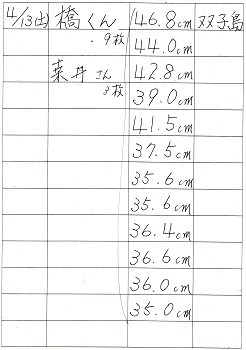 4/13(土) 橋くん 46.8cm 双子島
・9枚 44.0cm
葉井さん 42.8cm
3枚 39.0cm
41.5cm
37.5cm
35.6cm
35.6cm
36.4cm
36.6cm
36.0cm
35.0cm